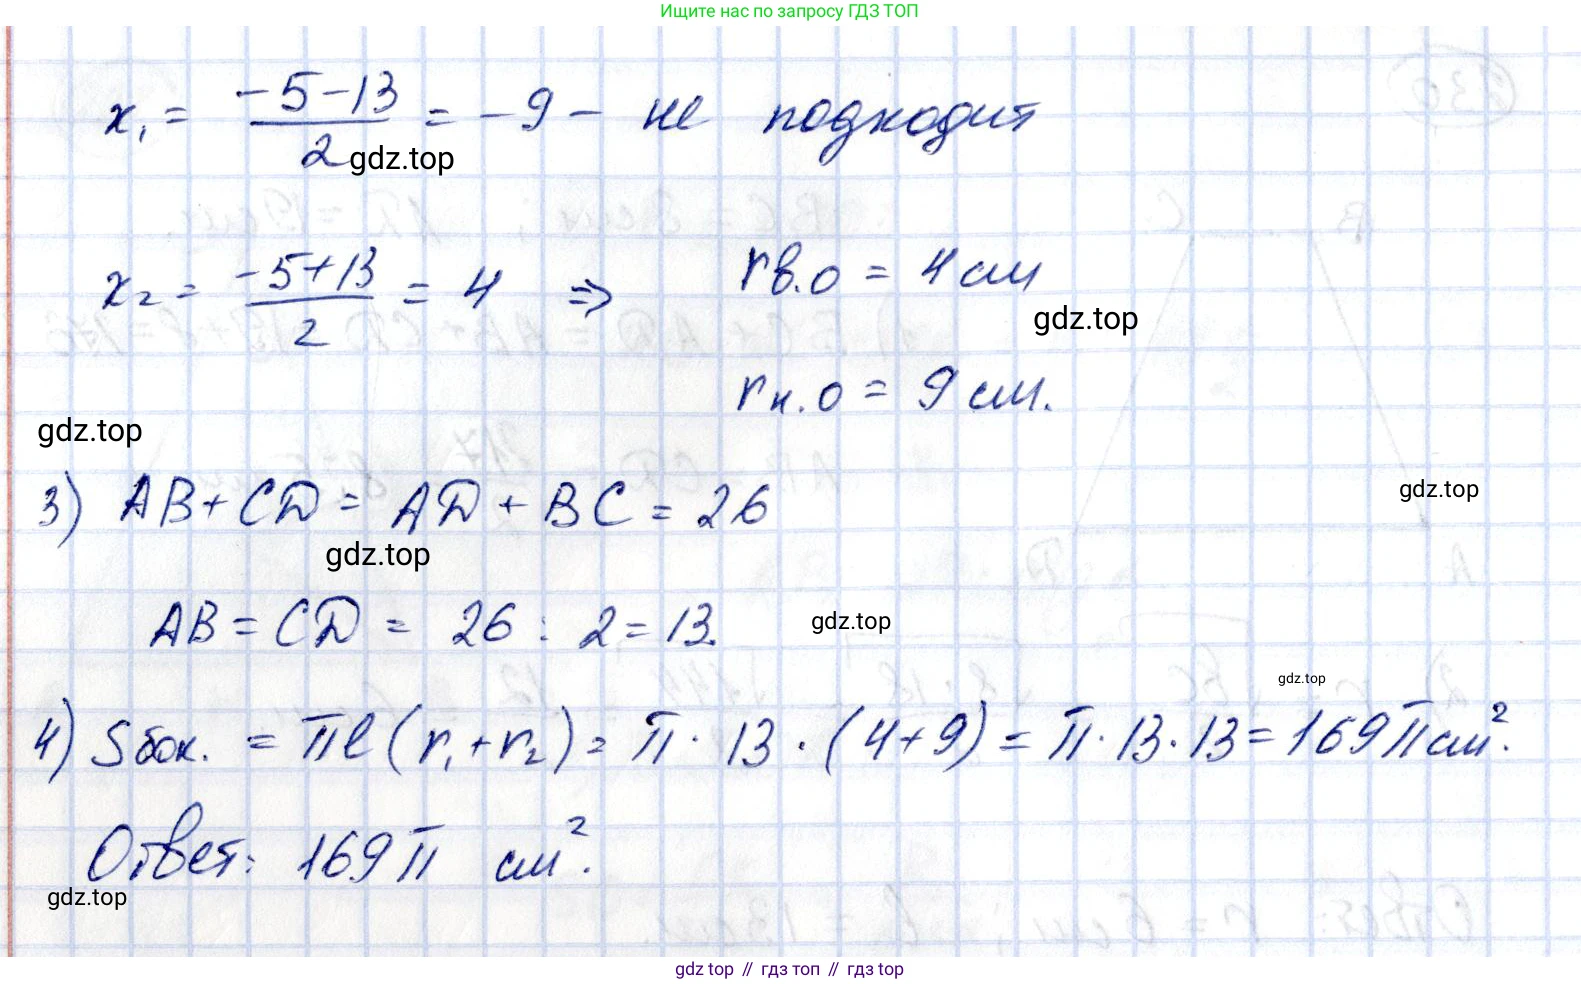 Ищите нас по запросу ГДЗ ТОП
x₁ = (-5-13)/2 = -9 - не подходит
gdz.top
x₂ = (-5+13)/2 = 4 ⇒ rв.о = 4 см
gdz.top
rн.о = 9 см.
gdz.top
gdz.top
3) AB + CD = AD + BC = 26
gdz.top
AB = CD = 26 : 2 = 13.
gdz.top
gdz.top
4) Sбок. = πl(r₁+r₂) = π · 13 · (4+9) = π · 13 · 13 = 169π см².
Ответ: 169π см².
gdz.top
gdz top // гдз топ // гдз top